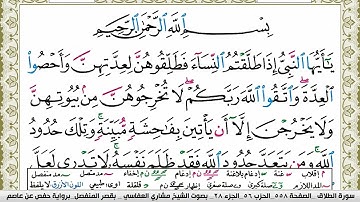 بِسْمِ ٱللَّهِ ٱلرَّحْمَٰنِ ٱلرَّحِيمِ
يَٰٓأَيُّهَا ٱلنَّبِىُّ إِذَا طَلَّقْتُمُ ٱلنِّسَآءَ فَطَلِّقُوهُنَّ لِعِدَّتِهِنَّ وَأَحْصُوا۟
ٱلْعِدَّةَ ۖ وَٱتَّقُوا۟ ٱللَّهَ رَبَّكُمْ ۖ لَا تُخْرِجُوهُنَّ مِنۢ بُيُوتِهِنَّ
وَلَا يَخْرُجْنَ إِلَّآ أَن يَأْتِينَ بِفَٰحِشَةٍ مُّبَيِّنَةٍ ۚ وَتِلْكَ حُدُودُ
ٱللَّهِ ۚ وَمَن يَتَعَدَّ حُدُودَ ٱللَّهِ فَقَدْ ظَلَمَ نَفْسَهُۥ ۚ لَا تَدْرِى لَعَلَّ
سورة الطلاق - الصفحة ٥٥٨ الجزء ٥٦ - الجزء ٢٨ - بصوت الشيخ مشاري العفاسي - برواية حفص عن عاصم